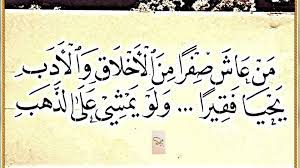 مَنْ عَاشَ صِفْرًا مِنَ الْأَخْلَاقِ وَالْأَدَبِ
يَحْيَا فَقِيرًا ... وَلَوْ يَمْشِي عَلَى الذَّهَبِ